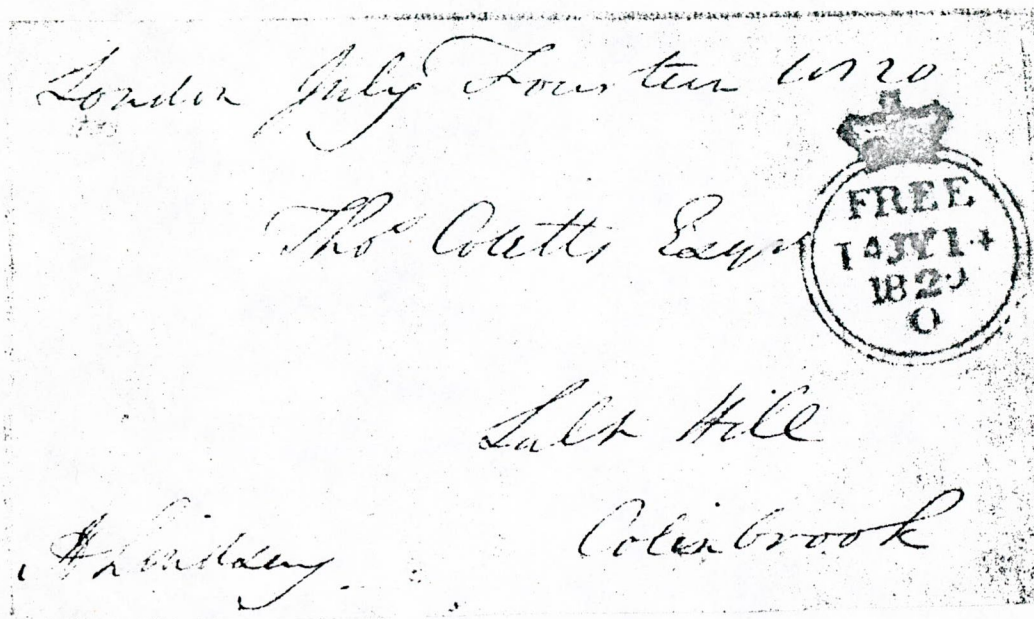 London July Fourteen 1820
Thos Coutts Esqre
FREE
14 JY 14
1820
O
Salt Hill
Colinbrook
H Lindsay